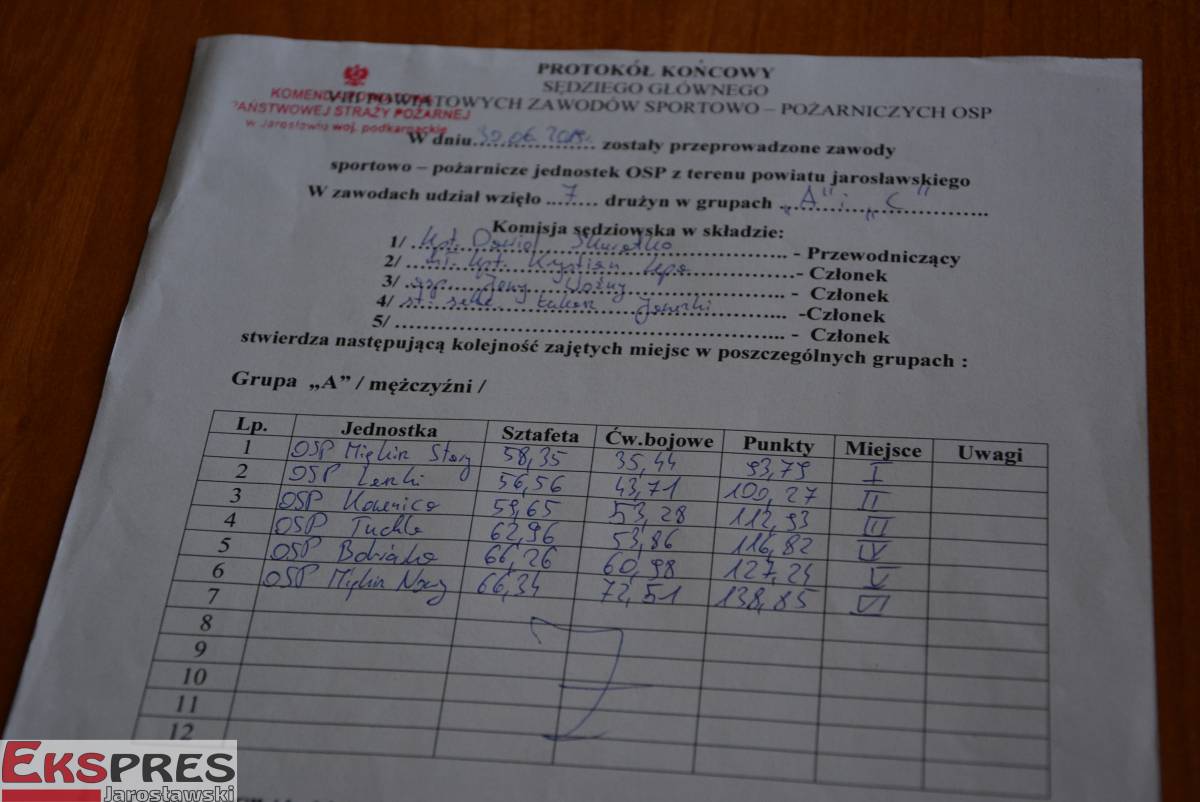 PROTOKÓŁ KOŃCOWY
SĘDZIEGO GŁÓWNEGO
VII POWIATOWYCH ZAWODÓW SPORTOWO – POŻARNICZYCH OSP
KOMENDA POWIATOWA
PAŃSTWOWEJ STRAŻY POŻARNEJ
w Jarosławiu woj. podkarpackie
W dniu 30.06.2019r. zostały przeprowadzone zawody
sportowo – pożarnicze jednostek OSP z terenu powiatu jarosławskiego
W zawodach udział wzięło ...7.... drużyn w grupach „A" i „C"
Komisja sędziowska w składzie:
1/ kpt. Dawid - Przewodniczący
2/ mł. kpt. Krystian - Członek
3/ asp. Jerzy Woźny - Członek
4/ st. sekc. Łukasz -Członek
5/ - Członek
stwierdza następującą kolejność zajętych miejsc w poszczególnych grupach :
Grupa „A” / mężczyźni /
Lp. Jednostka Sztafeta Ćw.bojowe Punkty Miejsce Uwagi
1 OSP Miękisz Stary 58,35 35,44 93,79 I
2 OSP Leszki 56,56 43,71 100,27 II
3 OSP Kaszyce 59,65 53,28 112,93 III
4 OSP Tuchla 62,96 53,86 116,82 IV
5 OSP Bobrówka 66,26 60,98 127,24 V
6 OSP Miękisz Nowy 66,34 72,51 138,85 VI
7
8
9
10
11
12
EKSPRES
Jarosławski